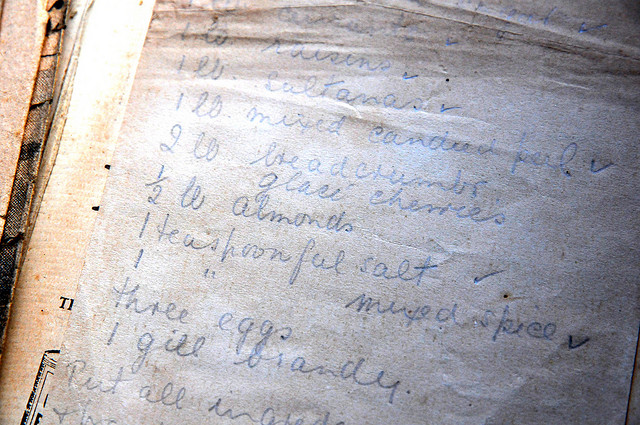 1 lb raisins ✓
1 lb. Sultanas. ✓
1 lb. mixed candied peel. ✓
2 lb breadcrumbs
glacé cherries
½ lb almonds
1 teaspoonful salt ✓
1 " mixed spice ✓
three eggs
1 gill brandy.
Put all
TI